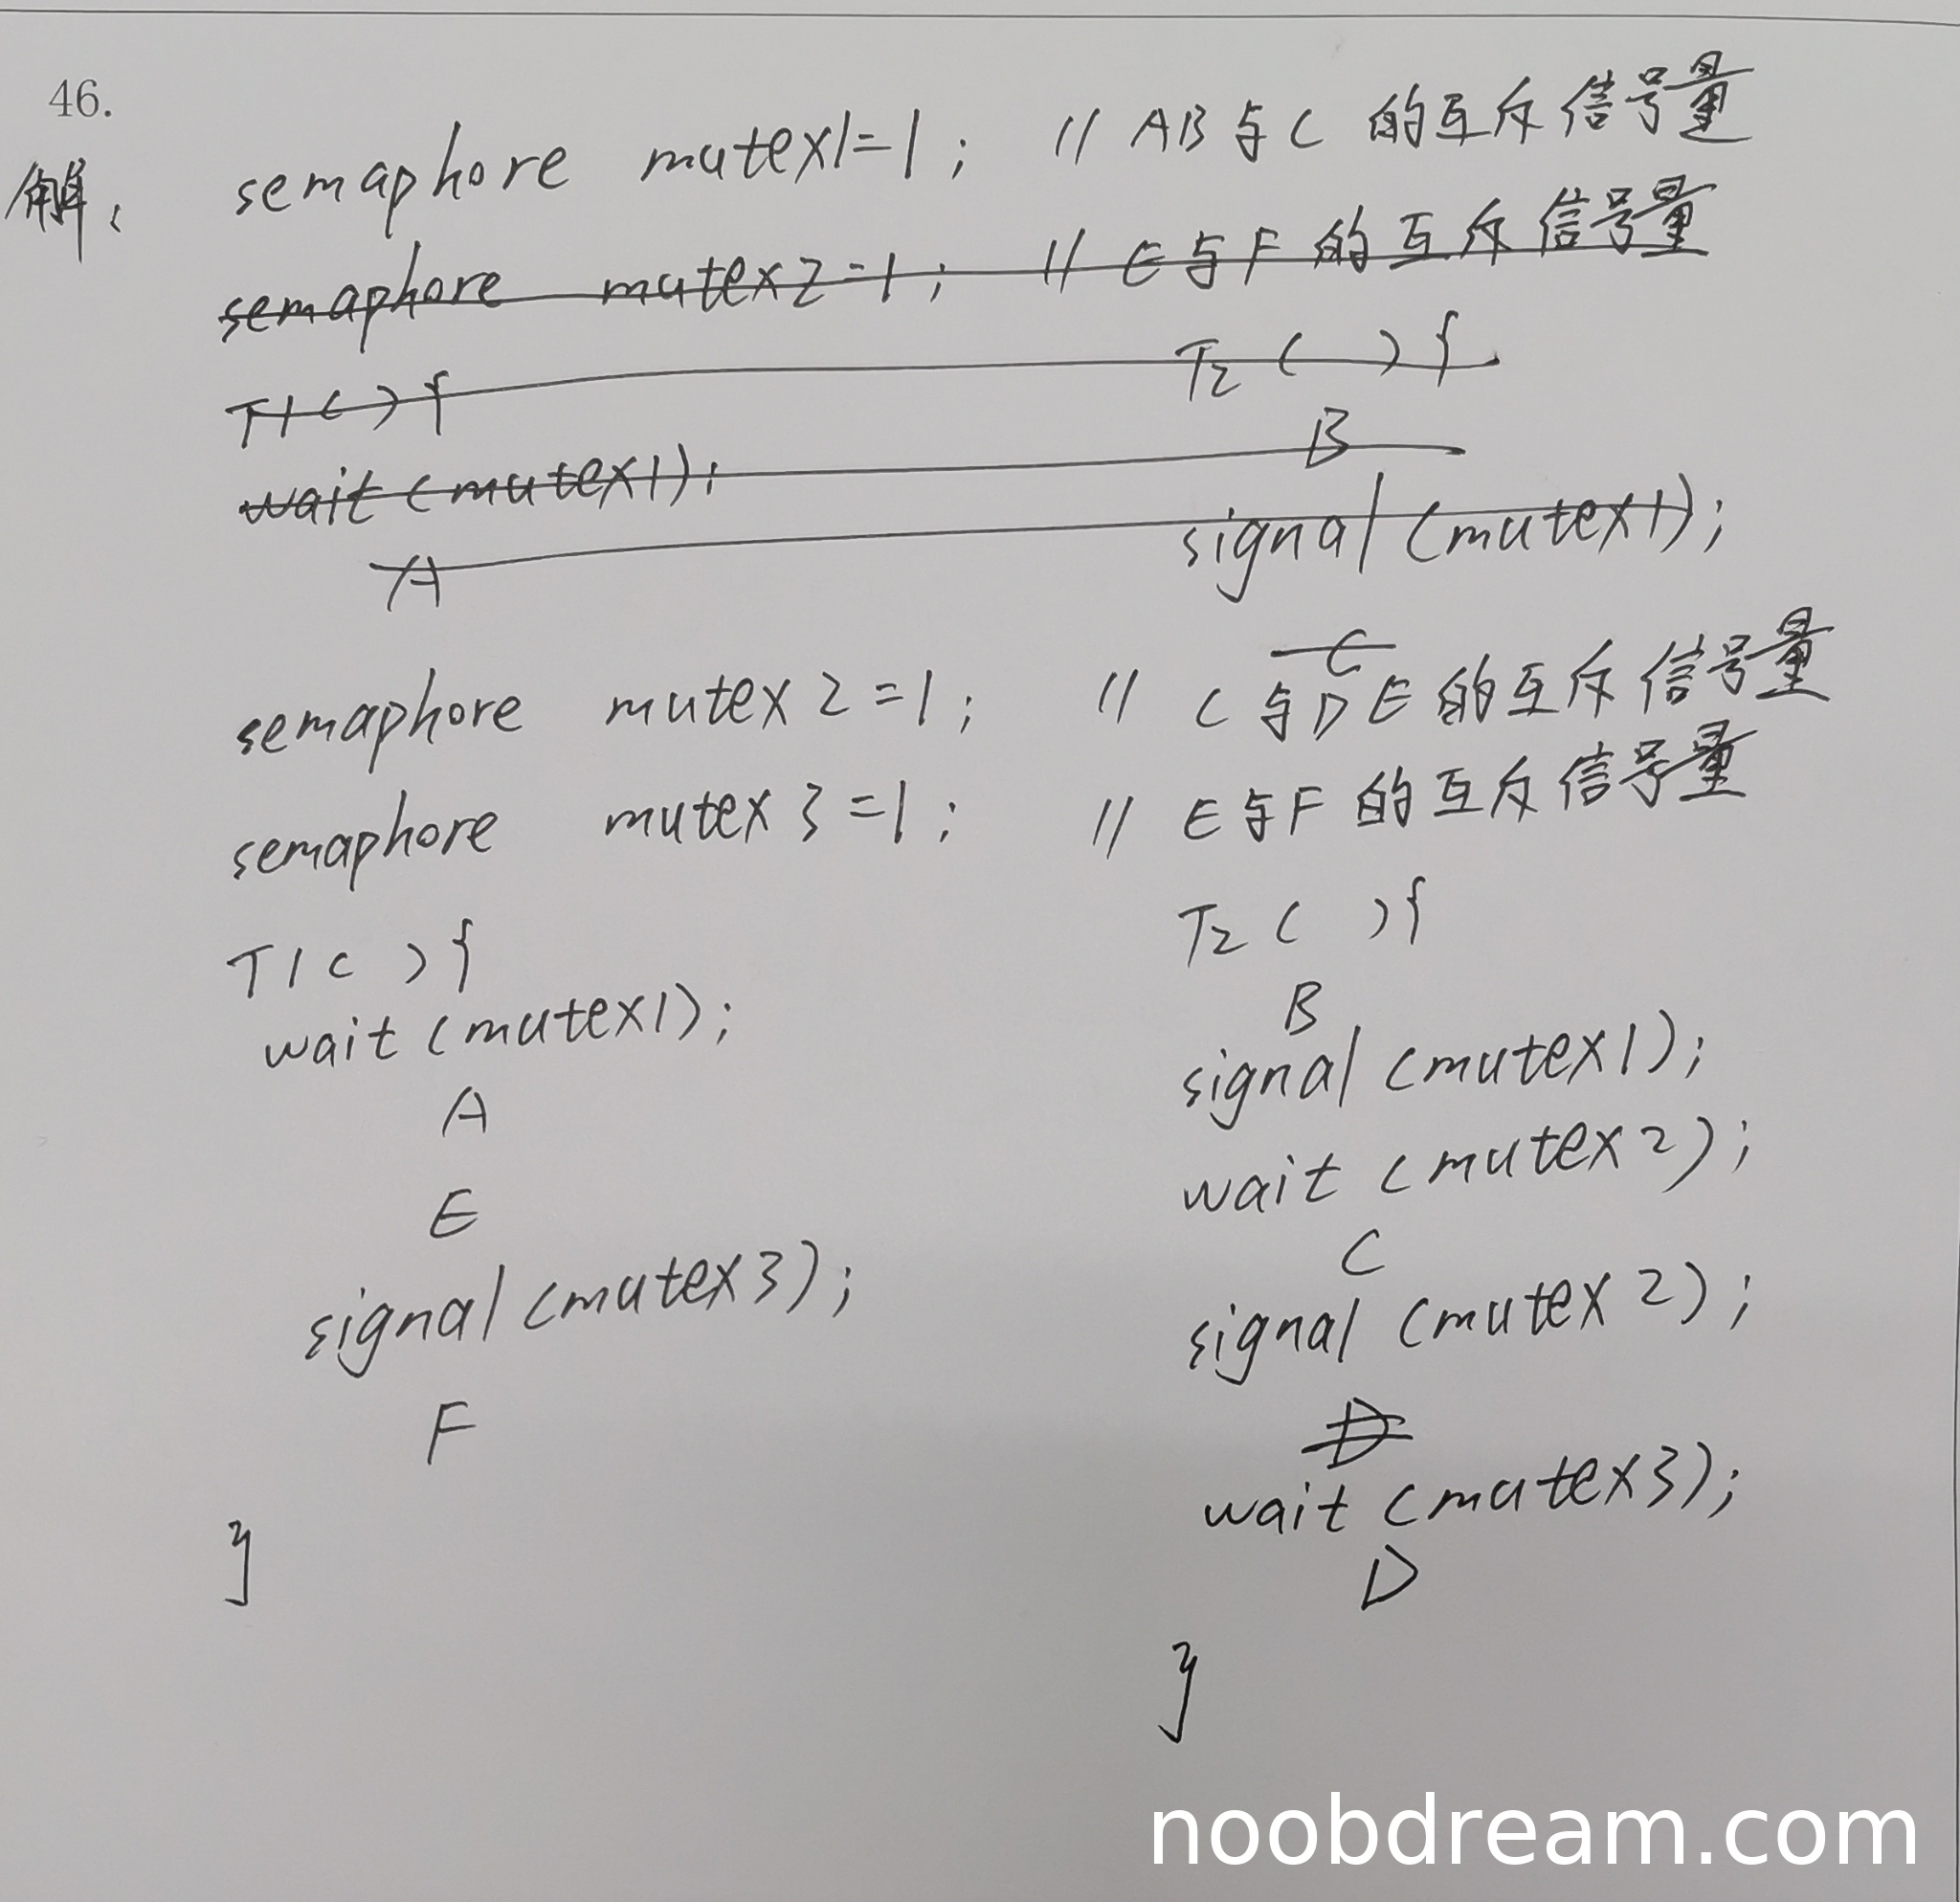 46.
解: semaphore mutex1=1; // AB与C 的互斥信号量
semaphore mutex2=1; // E与F 的互斥信号量
T1( ){ T2( ){
wait(mutex1); B
A signal(mutex1);
C
semaphore mutex2=1; // C与DE的互斥信号量
semaphore mutex3=1; // E与F的互斥信号量
T1( ){ T2( ){
wait(mutex1); B
A signal(mutex1);
E wait(mutex2);
signal(mutex3); C
F signal(mutex2);
D
wait(mutex3);
} D
}
noobdream.com